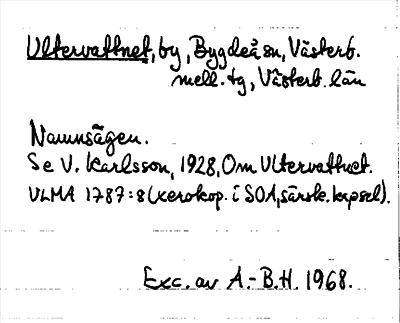 Ultervattnet, by, Bygdeå sn, Västerb.
mell. tg, Västerb. län
Namnsägen.
Se V. Karlsson, 1928, Om Ultervattnet.
ULMA 1787:8 (xerokop. i SOA, särsk. kapsel).
Exc. av A.-B.H. 1968.